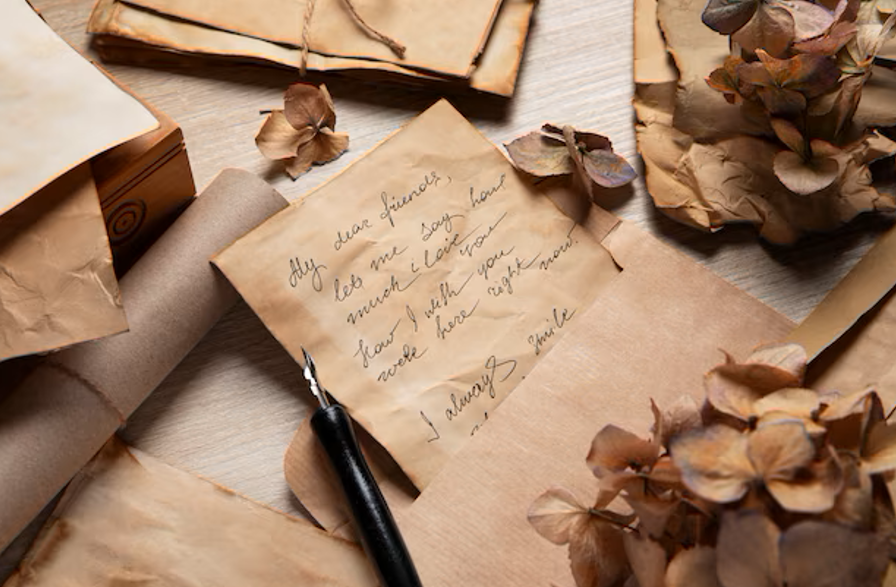 My dear friends,
let me say how
much i love you
how I wish you
were here right now.
I always smile